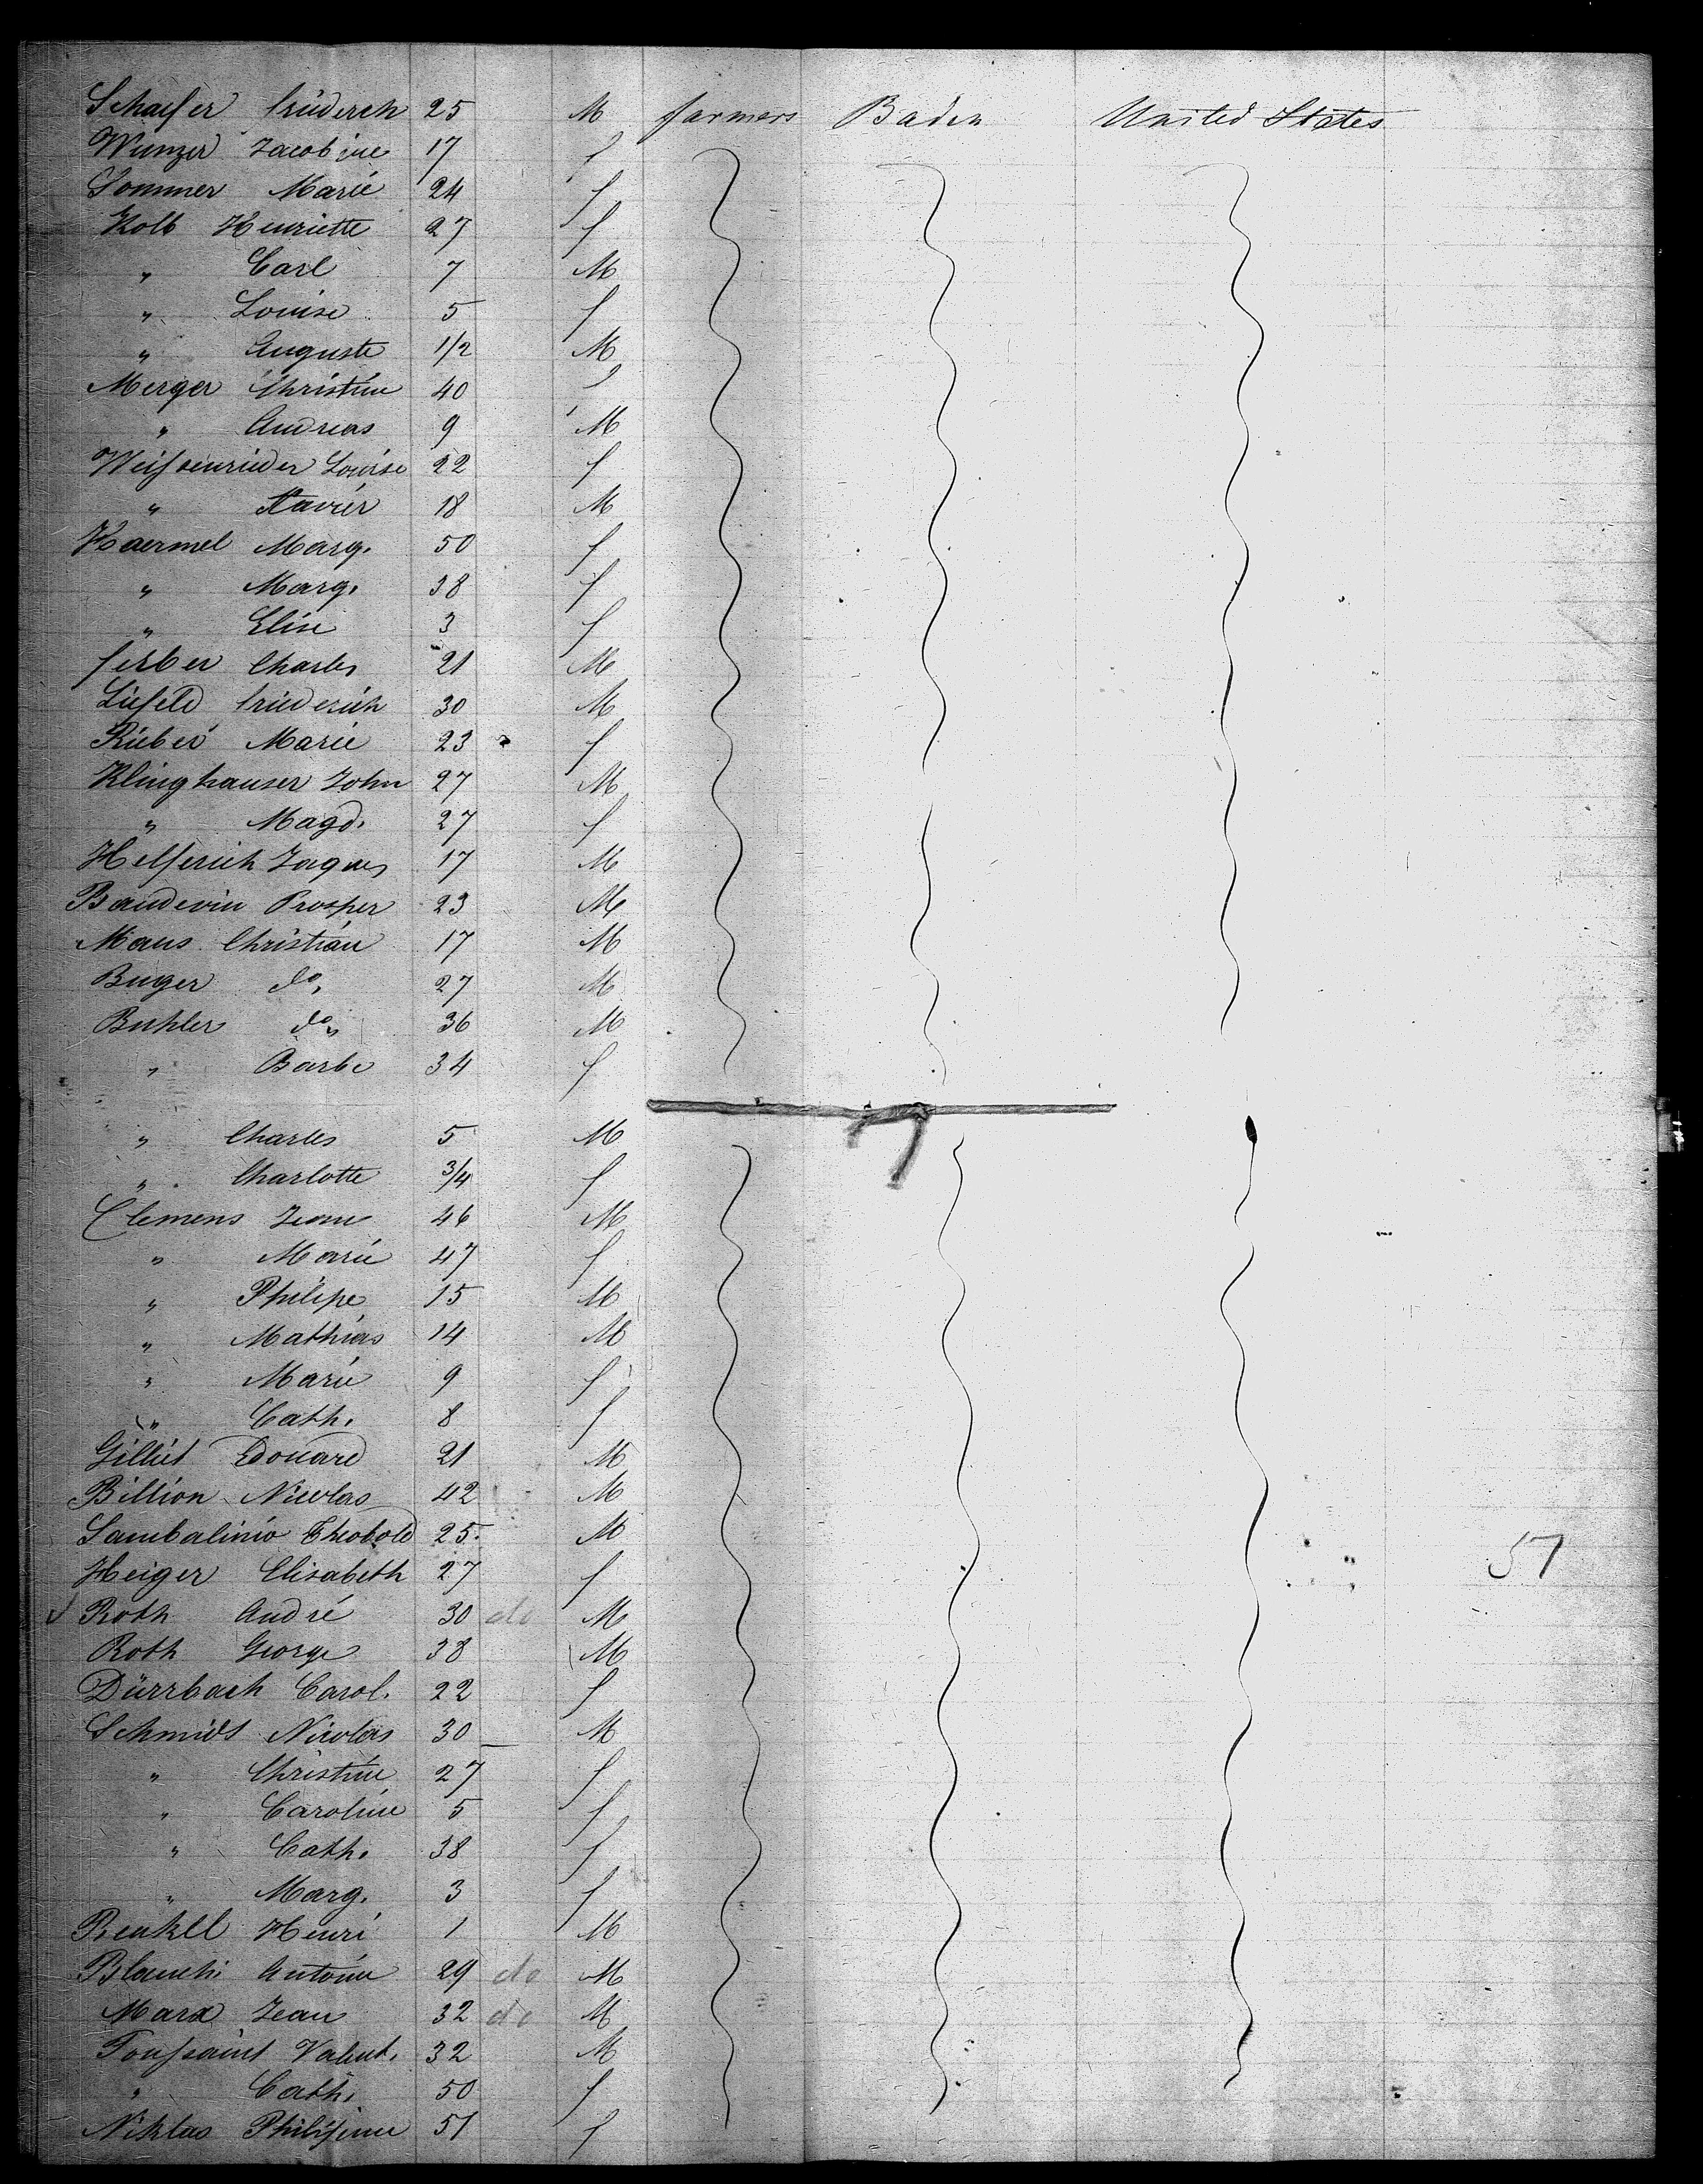 Schaefer Friederch 25 M farmers Baden United States
Wunzer Jacobine 17 f
Sommer Marie 24 f
Kolb Henriette 27 f
" Carl 7 M
" Louise 5 f
" Auguste 1/2 M
Merger Christine 40 f
" Andreas 9 M
Weissenrieder Louise 22 f
" Xavier 18 M
Haermel Marg. 50 f
" Marg. 38 f
" Elise 3 f
ferber Charles 21 M
Liefeld Friederich 30 M
Rieber Marie 23 f
Klinghauser John 27 M
" Magd. 27 f
Helferich Jaques 17 M
Baudevin Prosper 23 M
Maus Christian 17 M
Buger do, 27 M
Buhler do, 36 M
" Barbe 34 f
" Charles 5 M
" Charlotte 3/4 f
Clemens Jean 46 M
" Marie 47 f
" Philipe 15 M
" Mathias 14 M
" Marie 9 f
" Cath. 8 f
Gilliet Edouard 21 M
Billion Nicolas 42 M
Theobold 25. M
Heiger Elisabeth 27 f 57
Roth André 30 do M
Roth George 38 M
Dürrbach Carol. 22 f
Schmidt Nicolas 30 M
" Christine 27 f
" Caroline 5 f
" Cath. 38 f
" Marg. 3 f
Henri 1 M
Antoine 29 do M
Marx Jean 32 do M
Toussaint Valent. 32 M
" Cath. 50 f
Niklas Philipine 51 f